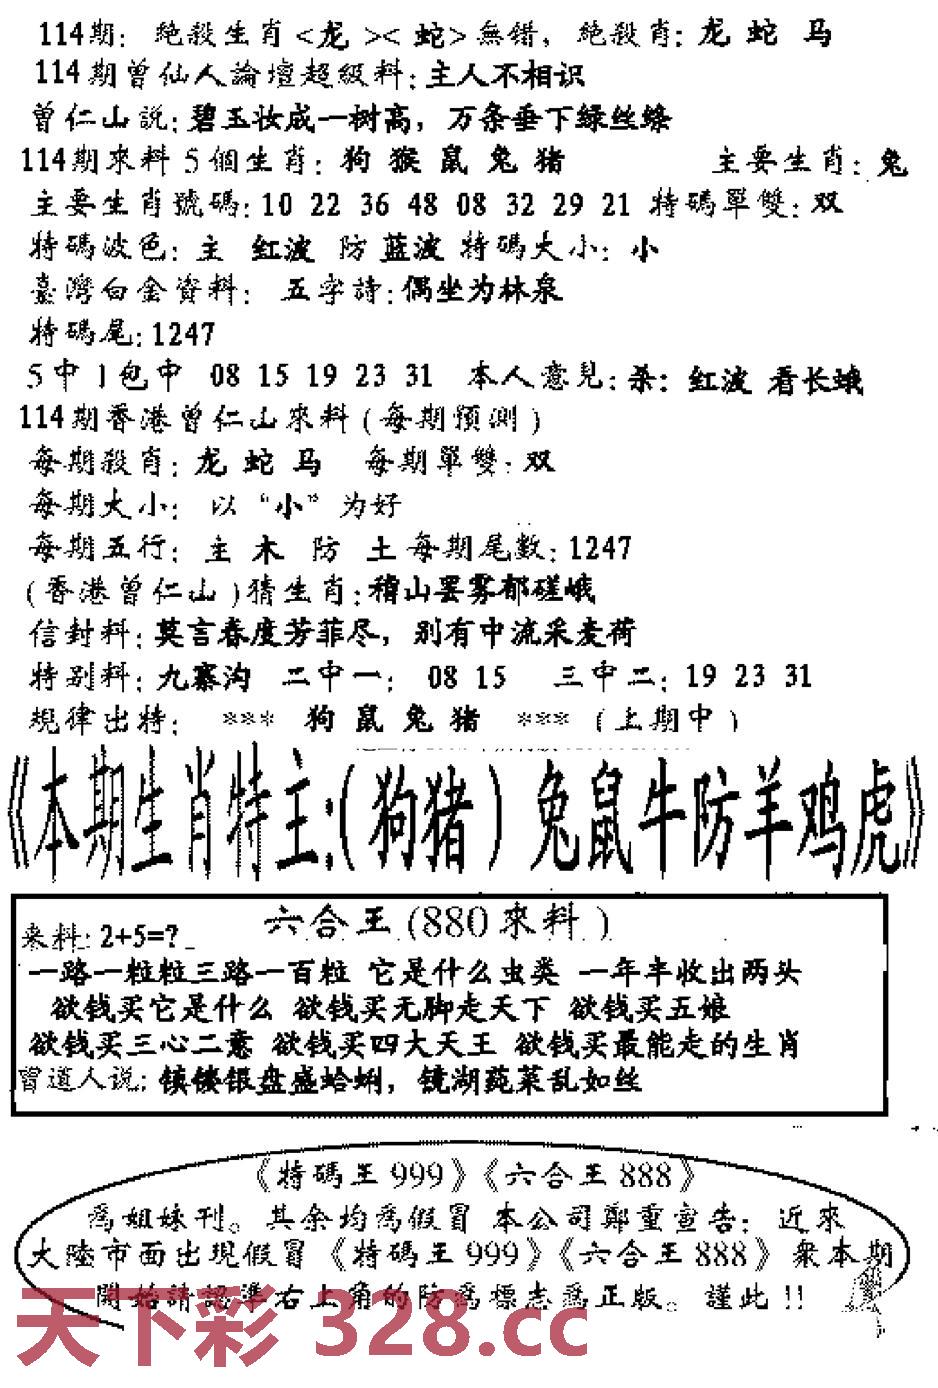 114期: 絶殺生肖<龙><蛇>無错, 絶殺肖: 龙 蛇 马
114期曾仙人論壇超級料: 主人不相识
曾仁山説: 碧玉妆成一树高, 万条垂下绿丝绦
114期來料 5個生肖: 狗 猴 鼠 兔 猪 主要生肖: 兔
主要生肖號碼: 10 22 36 48 08 32 29 21 特碼單雙: 双
特碼波色: 主 红波 防 蓝波 特碼大小: 小
臺灣白金資料: 五字詩: 偶坐为林泉
特碼尾: 1247
5中1包中 08 15 19 23 31 本人意見: 杀: 红波 看长蛾
114期香港曾仁山來料(每期預測)
每期殺肖: 龙 蛇 马 每期單雙: 双
每期大小: 以“小”为好
每期五行: 主 木 防 土 每期尾數: 1247
(香港曾仁山)猜生肖: 稽山罢雾郁磋峨
信封料: 莫言春度芳菲尽, 别有中流采麦荷
特别料: 九寨沟 二中一: 08 15 三中二: 19 23 31
規律出特: *** 狗 鼠 兔 猪 *** (上期中)
《本期生肖特主:(狗猪)兔鼠牛防羊鸡虎》
六合王(880來料)
来料: 2+5=?
一路一粒粒三路一百粒 它是什么虫类 一年丰收出两头
欲钱买它是什么 欲钱买无脚走天下 欲钱买五娘
欲钱买三心二意 欲钱买四大天王 欲钱买最能走的生肖
曾道人说: 镇镂银盘盛蛤蜊, 镜湖莼菜乱如丝
《特碼王999》《六合王888》
為姐妹刊。其余均為假冒 本公司鄭重宣告: 近來
大陸市面出現假冒《特碼王999》《六合王888》衆本期
開始請認準右上角的防爲標志爲正版。謹此!!
天下彩 328.cc